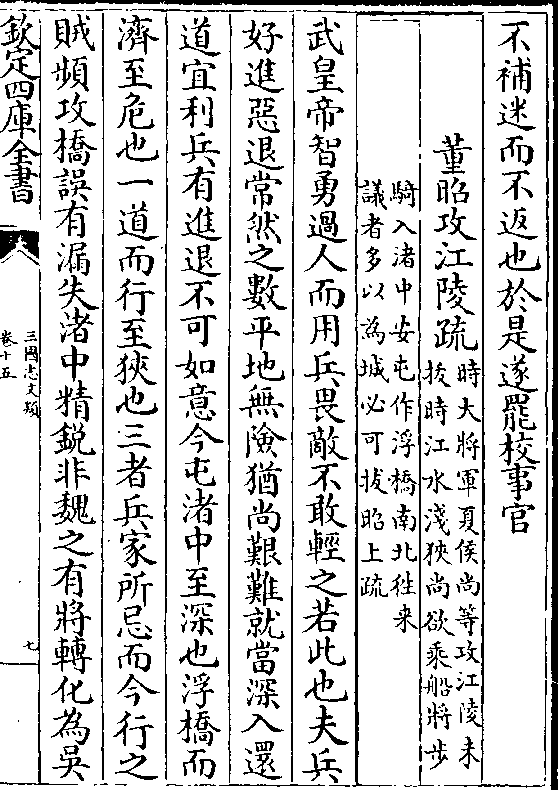 不補迷而不返也於是遂罷校事官
董昭攻江陵疏
時大將軍夏侯尚等攻江陵未
拔時江水淺狹尚欲乘船將步
騎入渚中安屯作浮橋南北徃来
議者多以為城必可拔昭上疏
武皇帝智勇過人而用兵畏敵不敢輕之若此也夫兵
好進惡退常然之數平地無險猶尚艱難就當深入還
道宜利兵有進退不可如意今屯渚中至深也浮橋而
濟至危也一道而行至狹也三者兵家所忌而今行之
賊頻攻橋誤有漏失渚中精銳非魏之有將轉化為吳
欽定四庫全書
三國志文類
卷十五
七